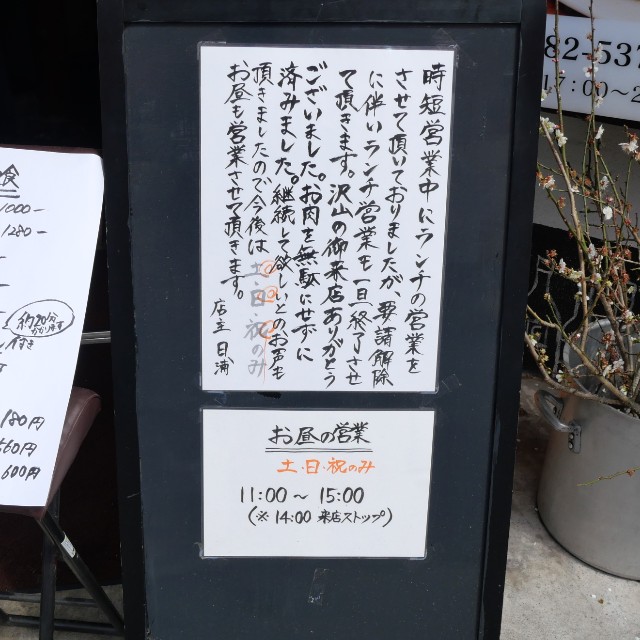 時短営業中にランチの営業を
させて頂いておりましたが、要請解除
に伴いランチ営業を一旦終了させ
て頂きます。沢山の御来店ありがとう
ございました。お肉を無駄にせずに
済みました。継続して欲しいとのお声も
頂きましたので今後は土・日・祝のみ
お昼も営業させて頂きます。
店主 日浦
お昼の営業
土・日・祝のみ
11:00～15:00
(※14:00 来店ストップ)
食
1000-
1280-
180円
560円
600円
82-537
:00～2